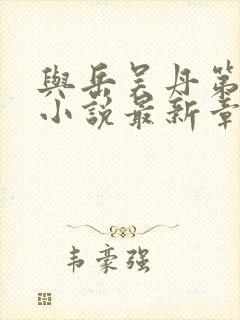 與岳吴丹第
小說最新章
韦豪强